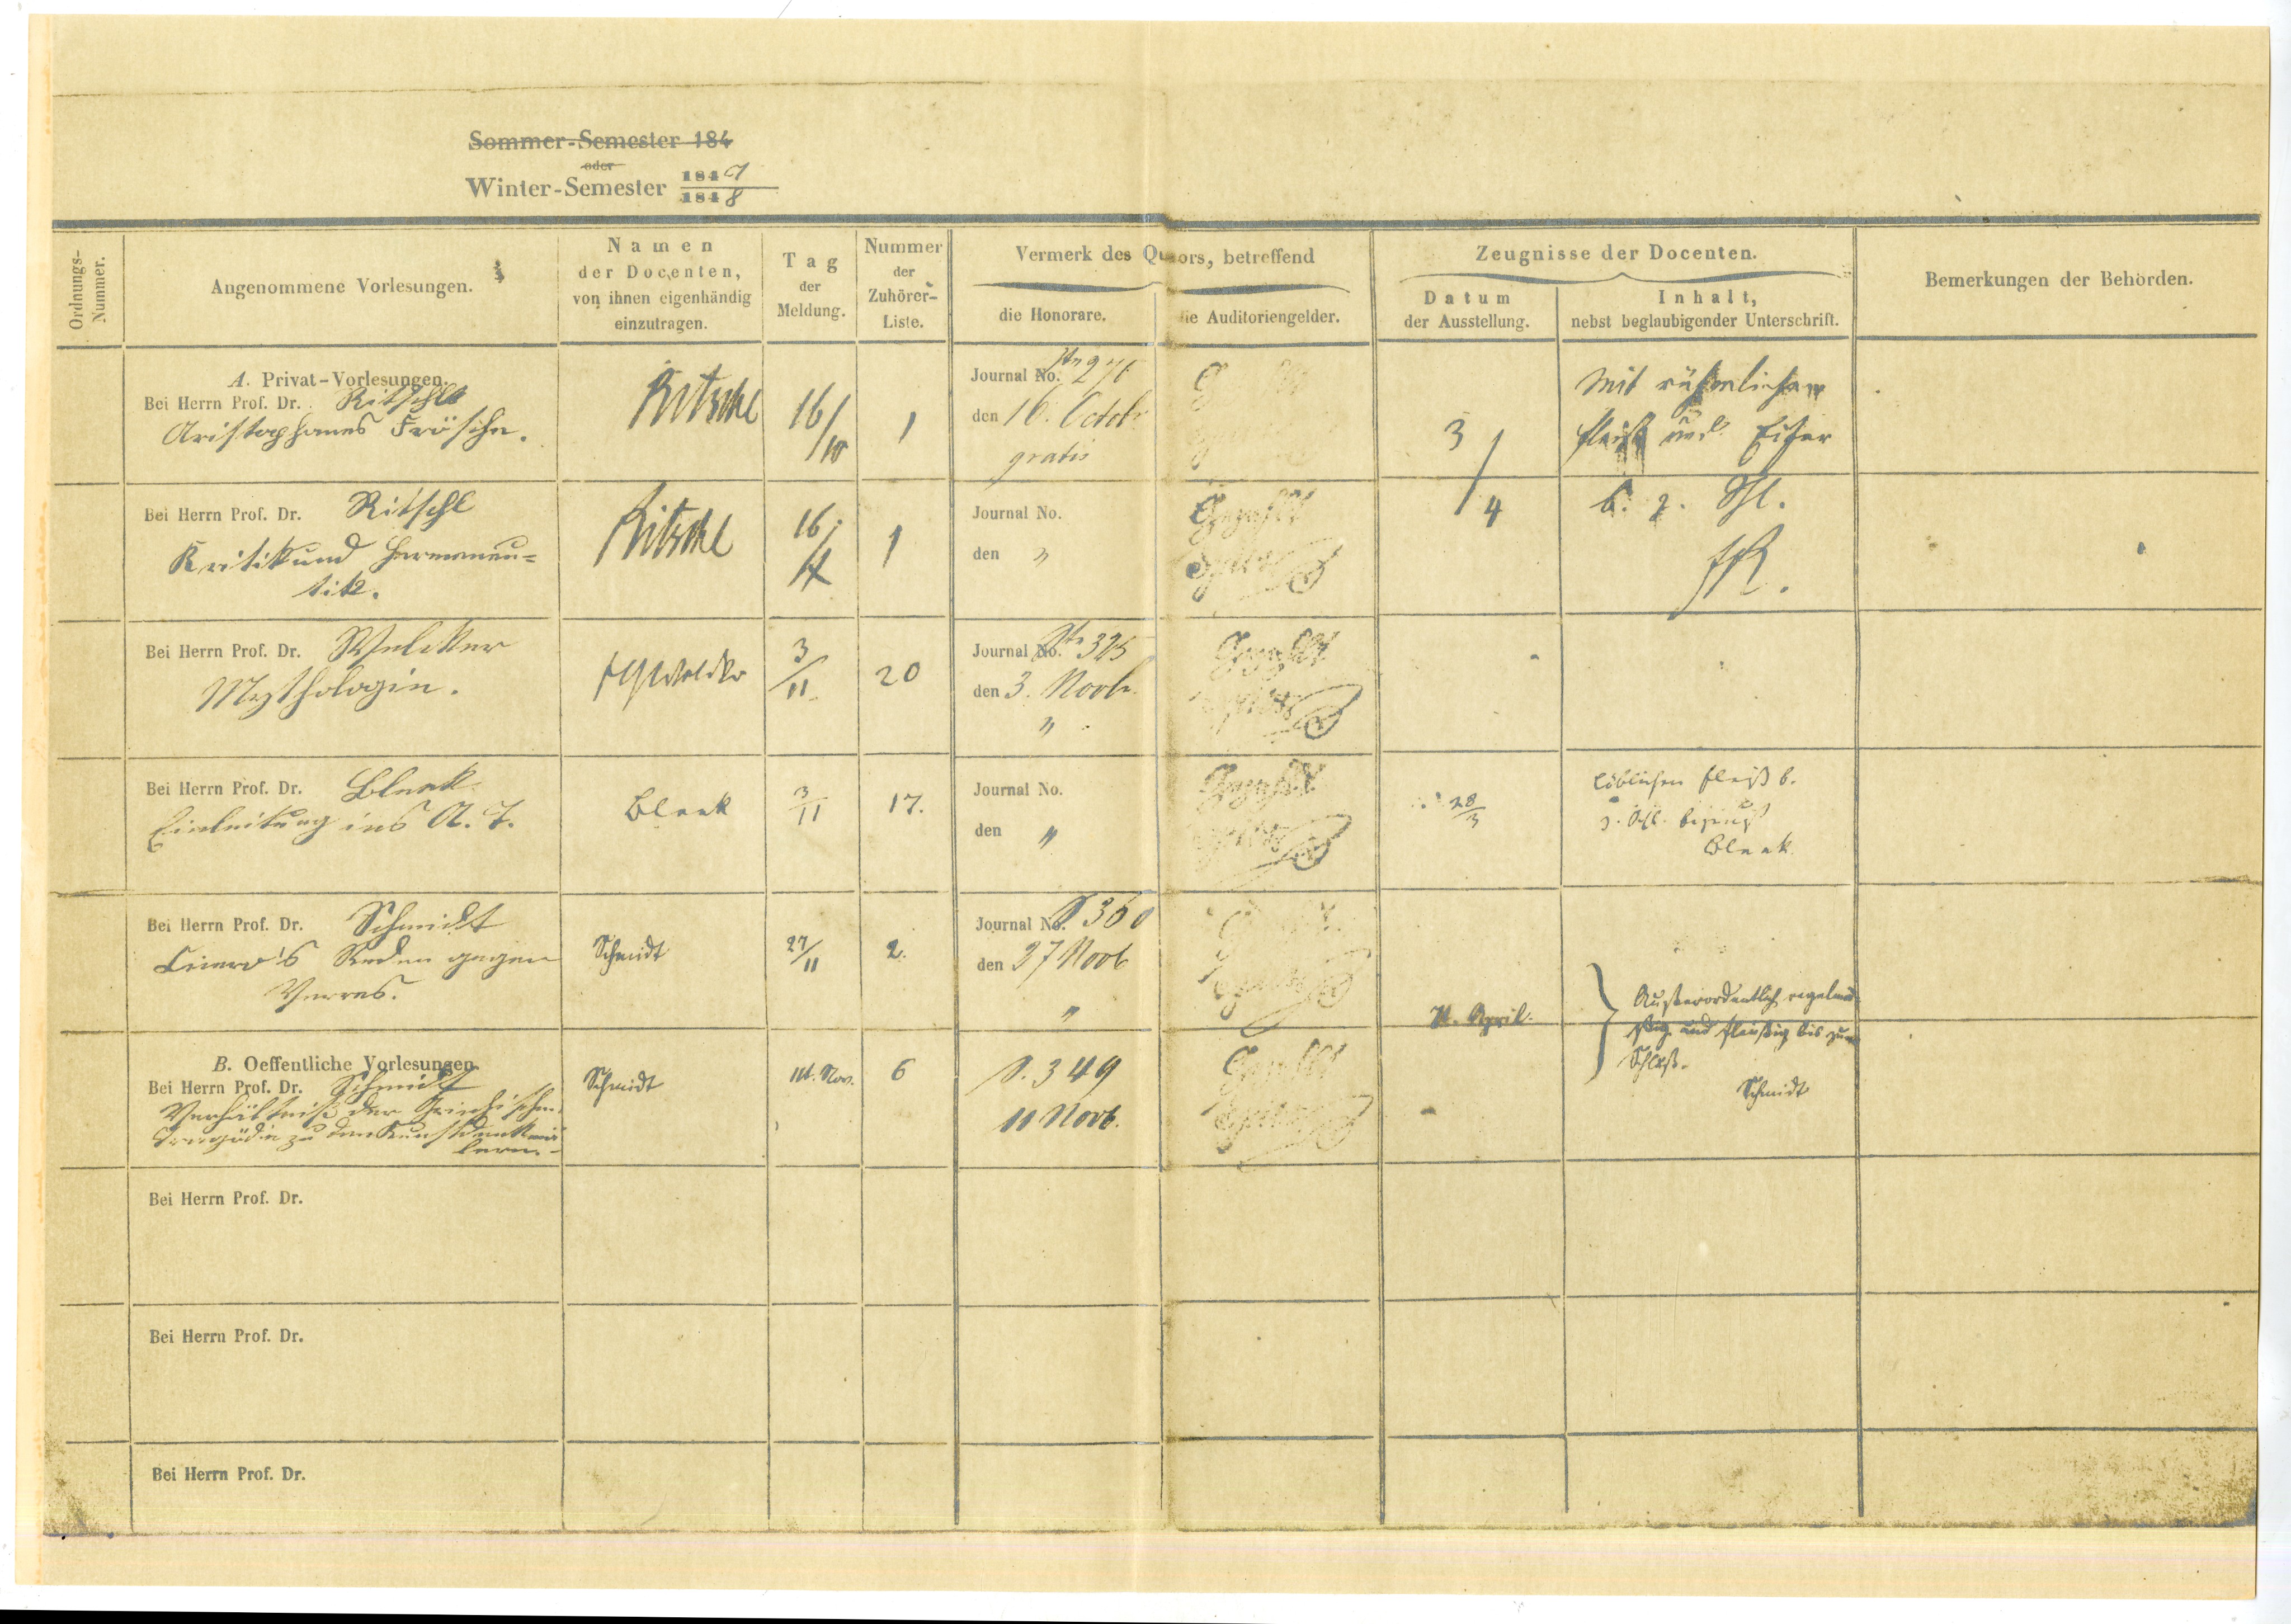 Sommer-Semester 184
oder
Winter-Semester 1847
1848
Ordnungs-
Nummer.
Angenommene Vorlesungen.
Namen
der Docenten,
von ihnen eigenhändig
einzutragen.
Tag
der
Meldung.
Nummer
der
Zuhörer-
Liste.
Vermerk des Quästors, betreffend
die Honorare.
die Auditoriengelder.
Zeugnisse der Docenten.
Datum
der Ausstellung.
Inhalt,
nebst beglaubigender Unterschrift.
Bemerkungen der Behörden.
A. Privat-Vorlesungen.
Bei Herrn Prof. Dr. Ritschl
Aristophanes Frösche.
Ritschl
16/10
1
Journal No. 276
den 16. Octob.
gratis
3/4
Mit rühmlichem
Fleiß und Eifer
b. z. Schl.
FR.
Bei Herrn Prof. Dr. Ritschl
Kritik und Hermeneu=
tik.
Ritschl
16/
1
Journal No.
den "
Gezahlt
Bei Herrn Prof. Dr. Welcker
Mythologie.
FGWelcker
3/11
20
Journal No. 325
den 3. Novb.
"
Gezahlt
Bei Herrn Prof. Dr. Bleek
Einleitung ins A. T.
Bleek
3/11
17.
Journal No.
den "
Gezahlt
28/3
Löblichen Fleiß b.
z. Schl. bezeugt
Bleek.
Bei Herrn Prof. Dr. Schmidt
Cicero's Reden gegen
Verres.
Schmidt
27/11
2.
Journal No. 360
den 27 Novb
"
11. April.
Außerordentlich regelmä-
ßig und fleißig bis zum
Schluß.
Schmidt
B. Oeffentliche Vorlesungen
Bei Herrn Prof. Dr. Schmidt
Verhältniß der Griechischen
Tragödie zu den Kunstdenkmä
lern.
Schmidt
11t. Nov.
6
S. 349
11 Novb.
Gezahlt
Bei Herrn Prof. Dr.
Bei Herrn Prof. Dr.
Bei Herrn Prof. Dr.